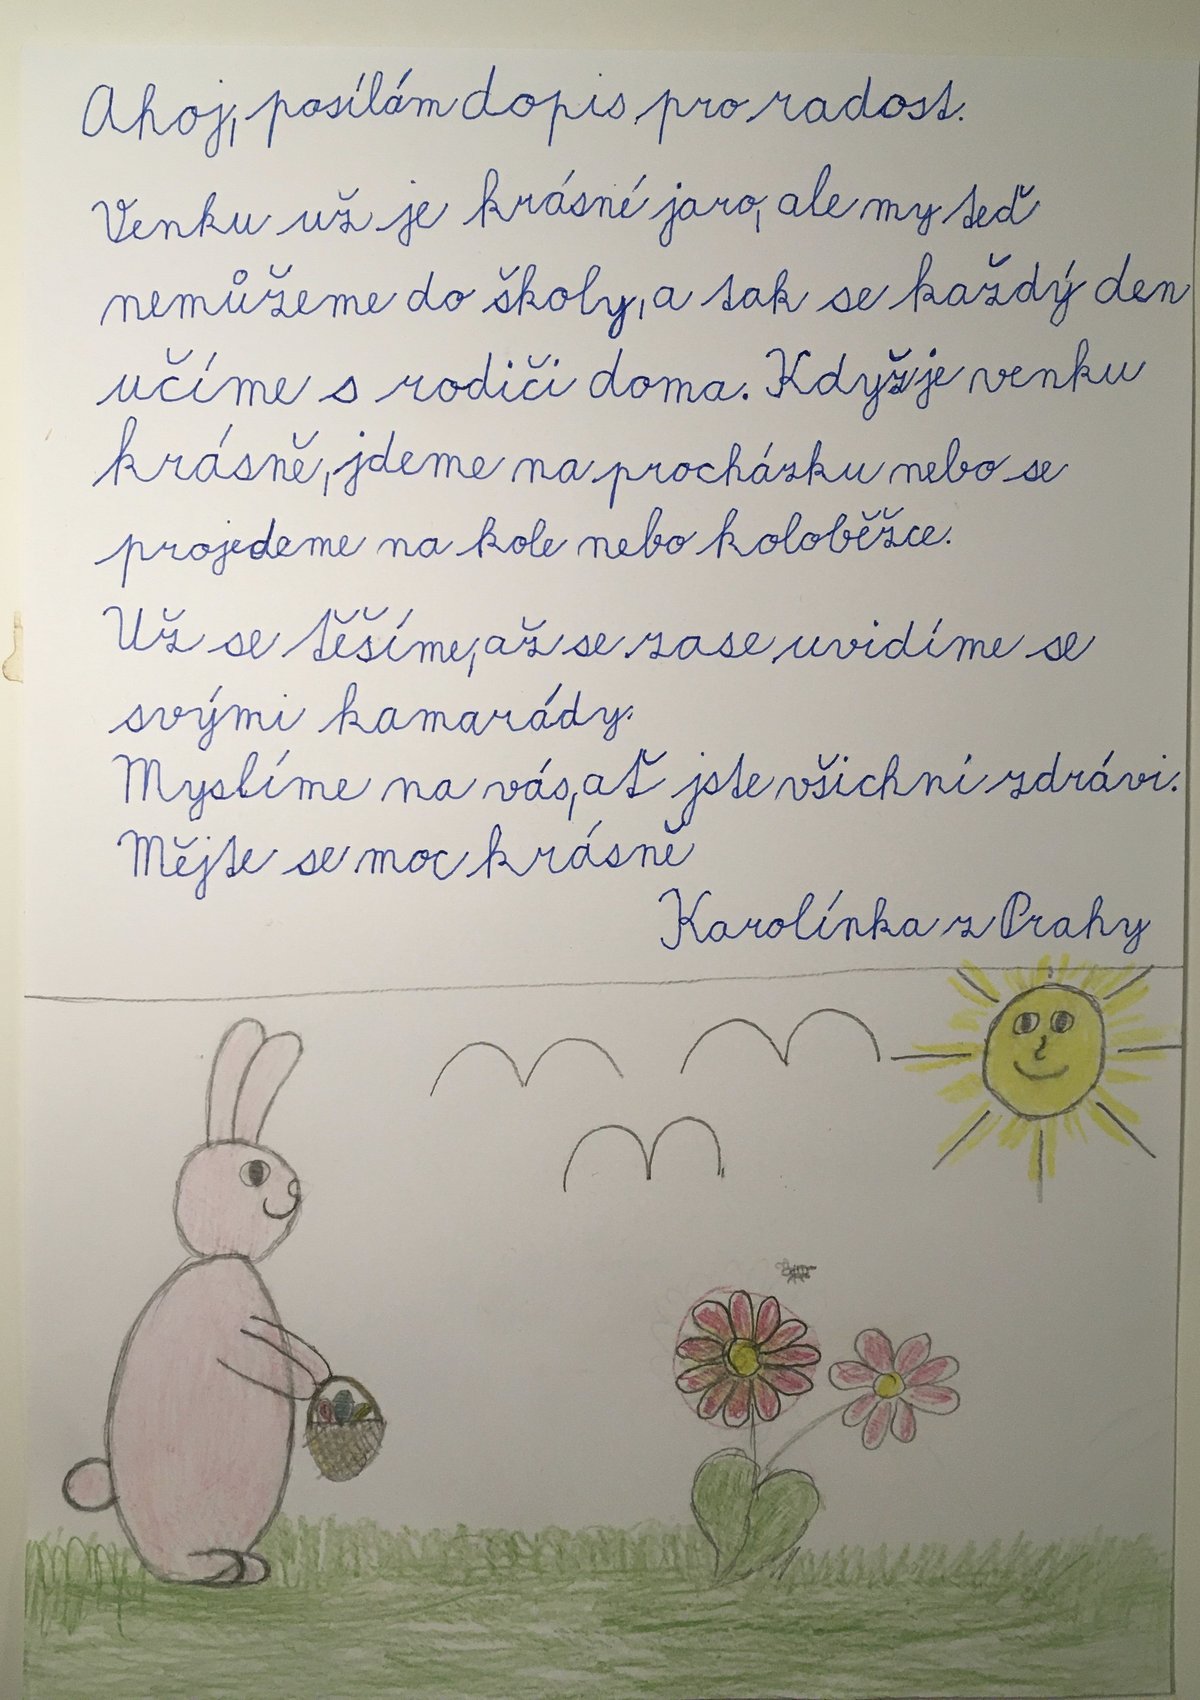 Ahoj, posílám dopis pro radost.
Venku už je krásné jaro, ale my teď
nemůžeme do školy, a tak se každý den
učíme s rodiči doma. Když je venku
krásně, jdeme na procházku nebo se
projedeme na kole nebo koloběžce.
Už se těšíme, až se zase uvidíme se
svými kamarády.
Myslíme na vás, ať jste všichni zdrávi.
Mějte se moc krásně
Karolínka z Prahy